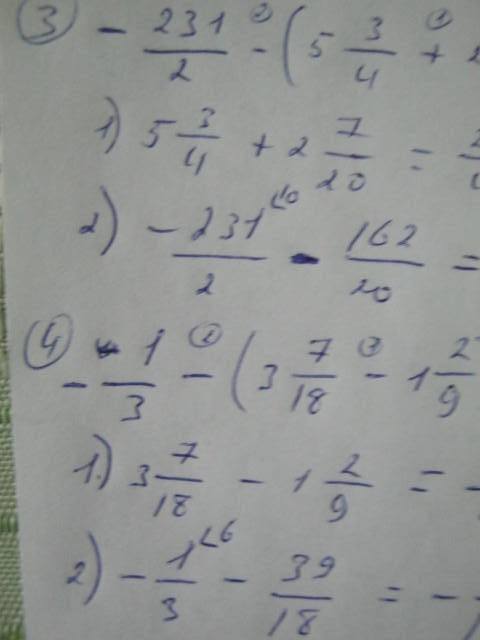 3) - 231/2 - (5 3/4 +
1) 5 3/4 + 2 7/20 =
2) - 231/2 - 162/20 =
4) - 1/3 - (3 7/18 - 1 2/9
1) 3 7/18 - 1 2/9 =
2) - 1/3 - 39/18 = -